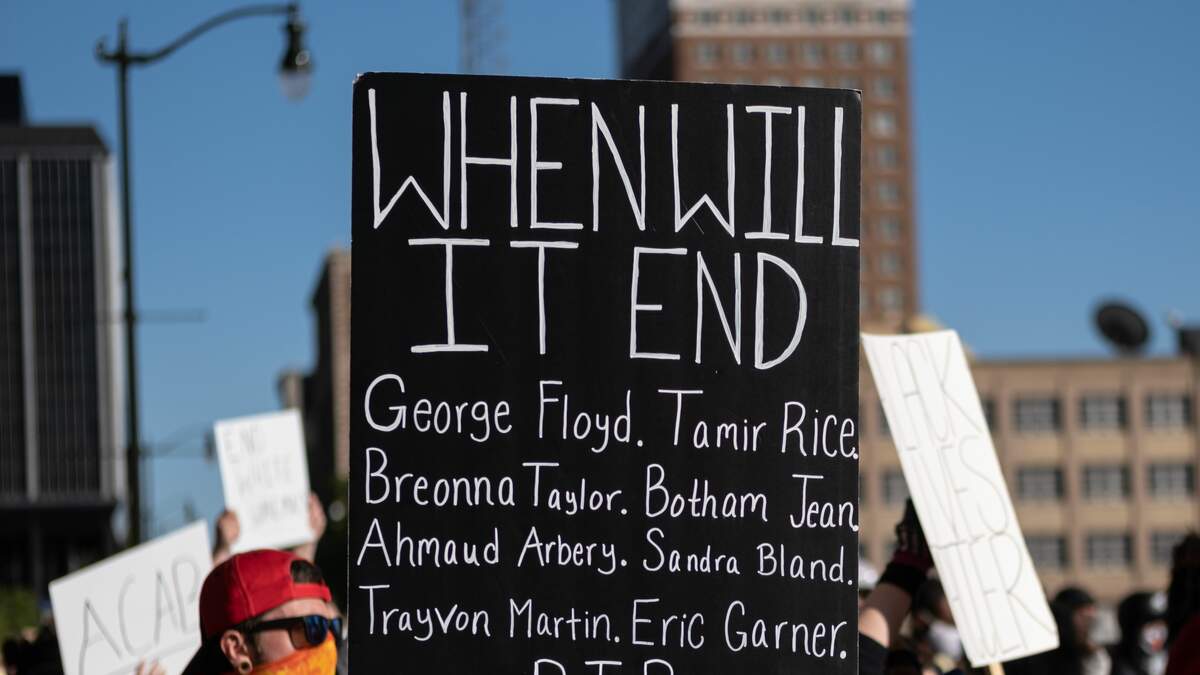 WHEN WILL
IT END
George Floyd. Tamir Rice.
Breonna Taylor. Botham Jean.
Ahmaud Arbery. Sandra Bland.
Trayvon Martin. Eric Garner.
R.I.P.
END
WHITE
ACAB